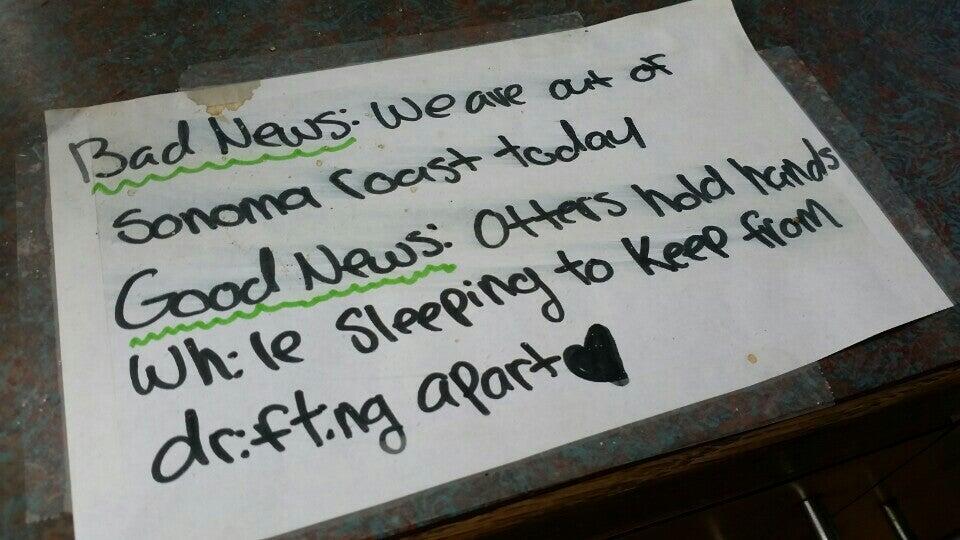 Bad News: We are out of
Sonoma roast today
Good News: Otters hold hands
While Sleeping to Keep from
drifting apart♥